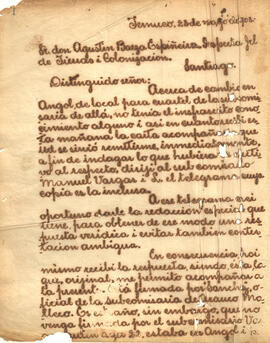 Temuco, 23 de
Sr. don Agustin Baeza Espiñeira, Inspector Jel
de Tierras i Colonizacion.
Santiago.
Distinguido señor:
Acerca de cambio en
Angol de local para cuartel de la
saria de allá, no tenia el infrascrito cono-
cimiento alguno i así en cuanto recibí es-
ta mañana la carta acompaña que
ud se sirvió remitirme, inmediatamente,
a fin de indagar lo que hubiera
vo al respecto, dirijí al sub comisa
Manuel Vargas el telegrama cuya
copia es la inclusa.
A ese telegrama creí
oportuno darle la redaccion especial que
tiene, para obtener de ese modo una res-
puesta verídica i evitar tambien contes-
tacion ambigua.
En consecuencia, hoi
mismo recibí la respuesta, siendo esta la
que, orijinal, me permito acompañar a
la presente. firmada por Sanchez, o-
ficial de la subcomisaria de
lleco. sin embargo, que no
venga firmada por el subcomisario Va
22, estaba en Angol i